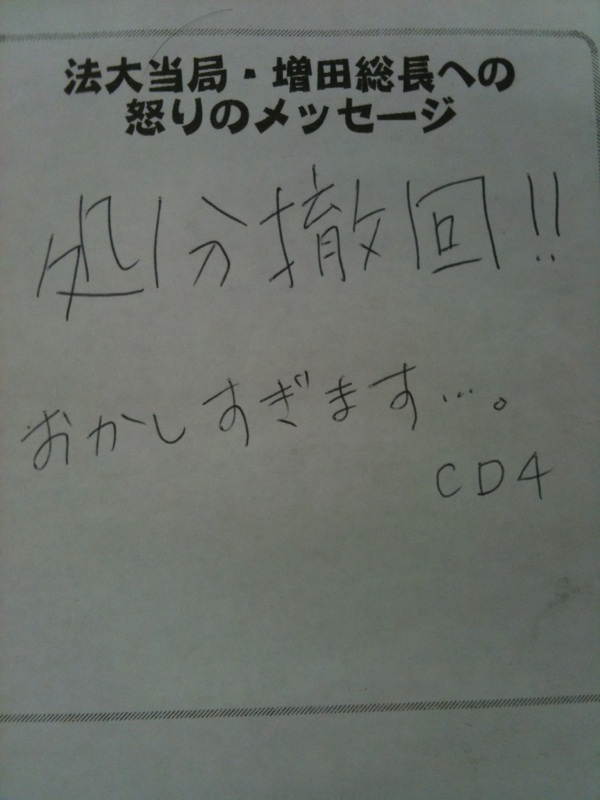 法大当局・増田総長への
怒りのメッセージ
処分撤回!!
おかしすぎます…。
CD4